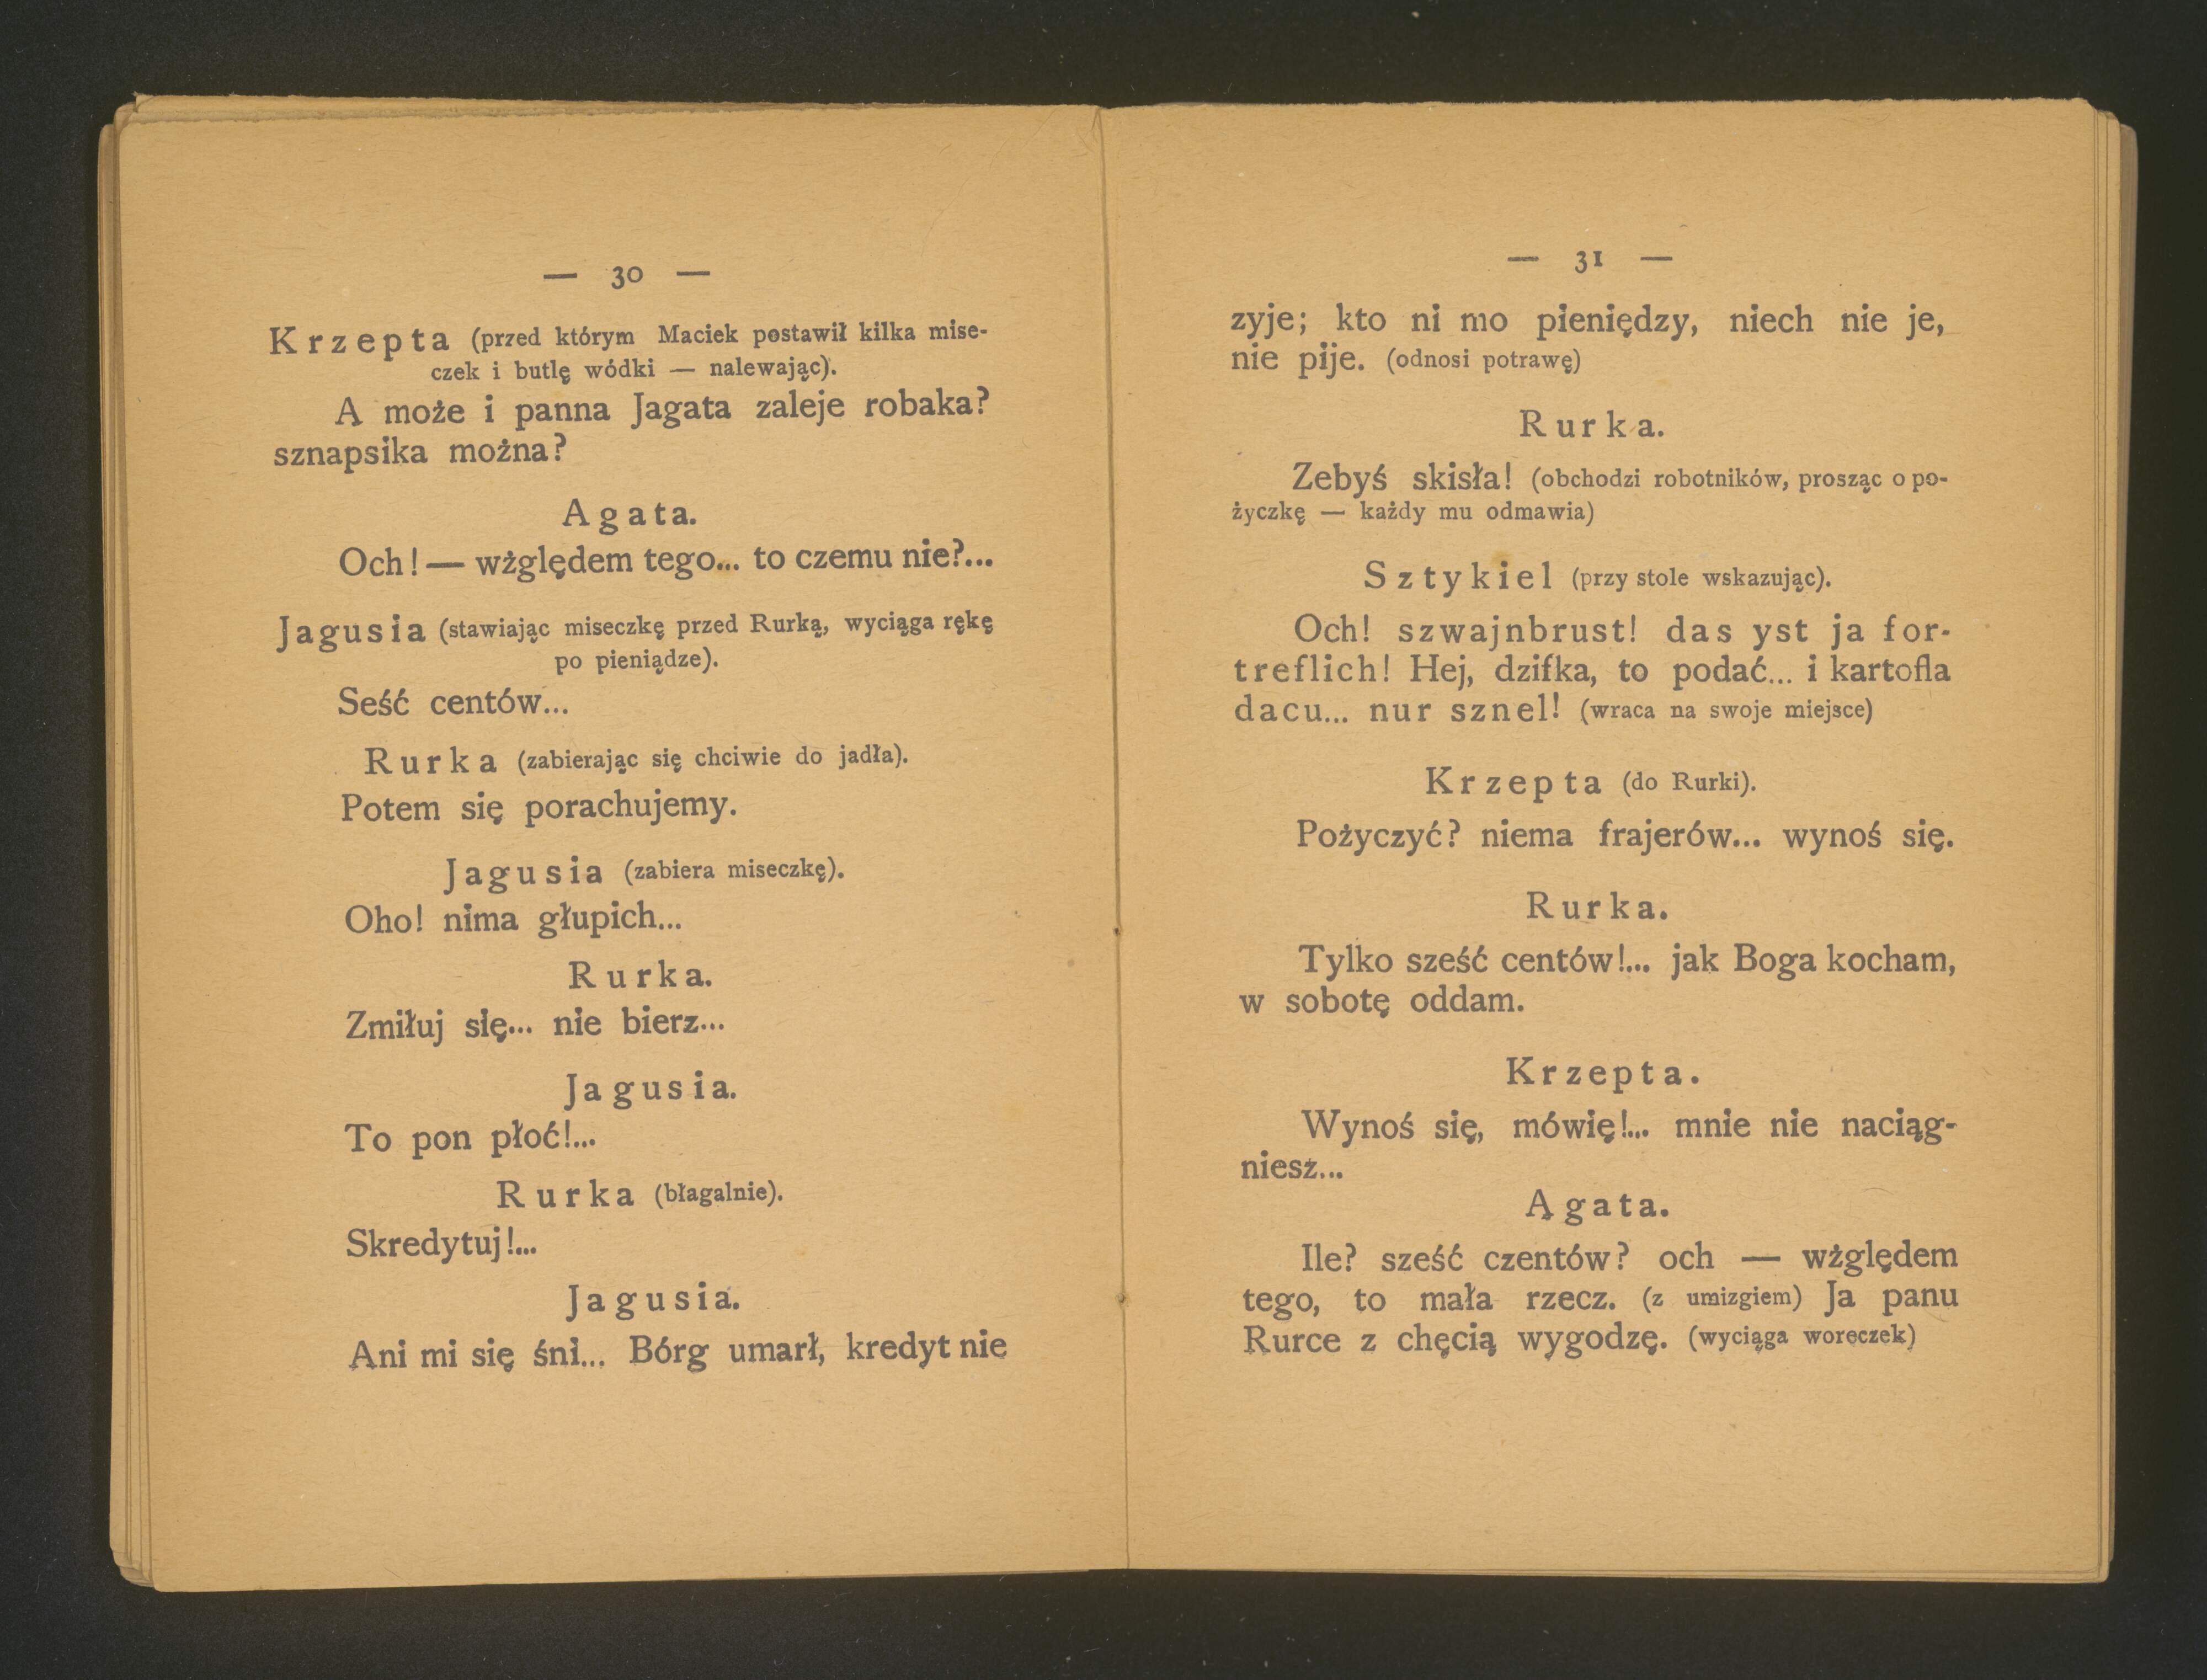 — 30 —
Krzepta (przed którym Maciek postawił kilka mise-
czek i butlę wódki — nalewając).
A może i panna Jagata zaleje robaka?
sznapsika można?
Agata.
Och! — wżględem tego... to czemu nie?...
Jagusia (stawiając miseczkę przed Rurką, wyciąga rękę
po pieniądze).
Seść centów...
Rurka (zabierając się chciwie do jadła).
Potem się porachujemy.
Jagusia (zabiera miseczkę).
Oho! nima głupich...
Rurka.
Zmiłuj się... nie bierz...
Jagusia.
To pon płoć!...
Rurka (błagalnie).
Skredytuj!...
Jagusia.
Ani mi się śni... Bórg umarł, kredyt nie
— 31 —
zyje; kto ni mo pieniędzy, niech nie je,
nie pije. (odnosi potrawę)
Rurka.
Zebyś skisła! (obchodzi robotników, prosząc o po-
życzkę — każdy mu odmawia)
Sztykiel (przy stole wskazując).
Och! szwajnbrust! das yst ja for-
treflich! Hej, dzifka, to podać... i kartofla
dacu... nur sznel! (wraca na swoje miejsce)
Krzepta (do Rurki).
Pożyczyć? niema frajerów... wynoś się.
Rurka.
Tylko sześć centów!... jak Boga kocham,
w sobotę oddam.
Krzepta.
Wynoś się, mówię!... mnie nie naciąg-
niesz...
Agata.
Ile? sześć czentów? och — wżględem
tego, to mała rzecz. (z umizgiem) Ja panu
Rurce z chęcią wygodzę. (wyciąga woreczek)